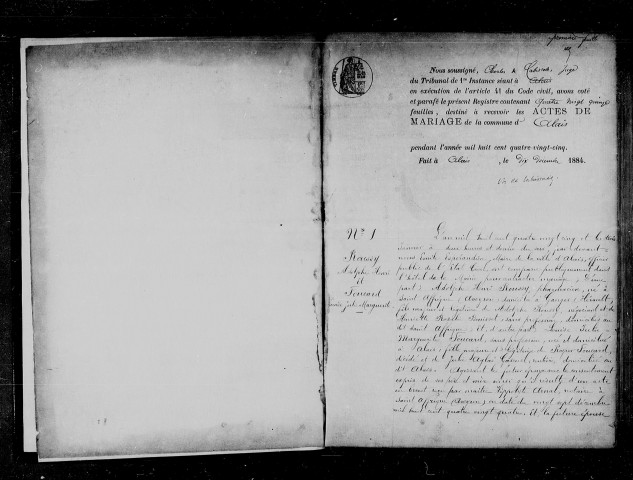 première feuille
Nous soussigné, Charles de Juge
du Tribunal de 1re Instance séant à Alais
en exécution de l'article 41 du Code civil, avons coté
et parafé le présent Registre contenant Quatre vingt quinze
feuilles, destiné à recevoir les ACTES DE
MARIAGE de la commune d' Alais
pendant l'année mil huit cent quatre-vingt-cinq.
Fait à Alais, le dix Décembre 1884.
No 1
Roussy
Adolphe Henri
et
Foucard
Louise Julie Marguerite
L'an mil huit cent quatre vingt cinq et le trois
Janvier à deux heures et demie du soir, par devant
nous Emile Maire de la ville d'Alais, officier
public de l'Etat Civil, ont comparu publiquement dans
l'hôtel de la Mairie pour contracter mariage, d'une
part, Adolphe Henri Roussy, pharmacien, né à
Saint Affrique, Aveyron, domicilié à Ganges, Hérault,
fils majeur et légitime de Adolphe Roussy, négociant et de
Henriette sans profession, domiciliés au
dit Saint Affrique; Et d'autre part, Louise Julie
Marguerite Foucard, sans profession, née et domiciliée
à Alais, fille majeure et légitime de Foucard,
décédé et de Julie Aglaé domiciliée au
dit Alais. Agissant le futur époux avec le consentement
exprès de ses père et mère ainsi qu'il résulte d'un acte
en brevet reçu par maître Hippolyte notaire à
Saint Affrique (Aveyron) en date du vingt sept décembre
mil huit cent quatre vingt quatre, et la future épouse